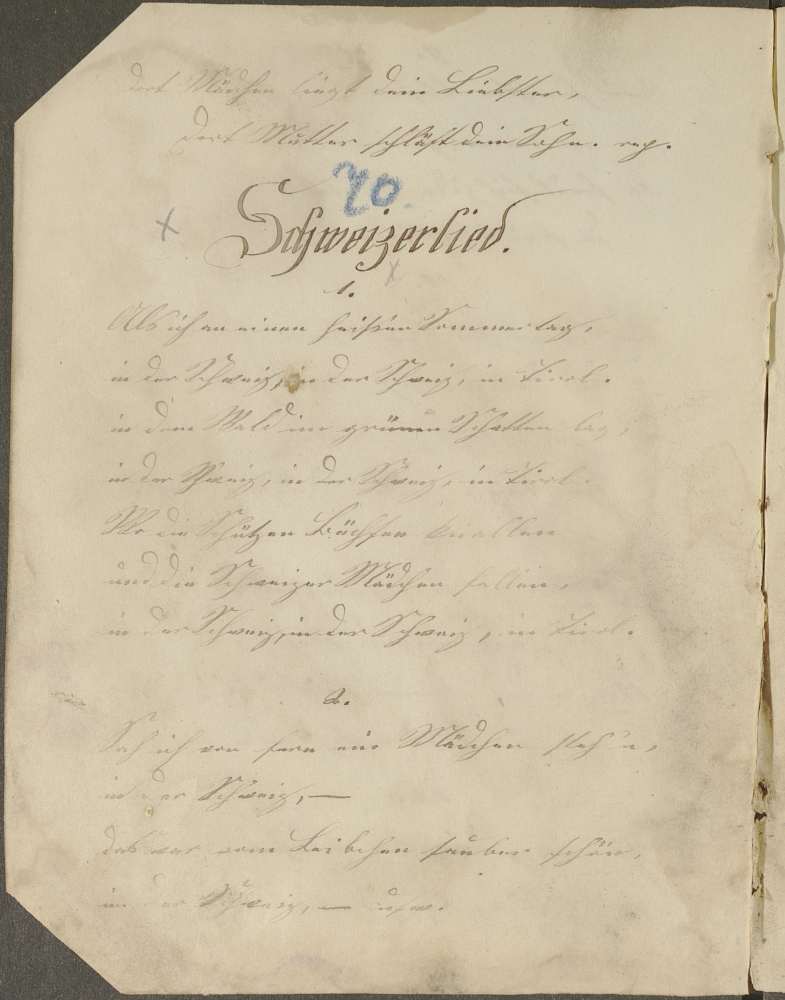 dort Mädchen liegt dein Liebster,
dort Mutter schläft dein Sohn. rep.
70
Schweizerlied.
1.
Als ich an einen heißen Sommertag,
in der Schweiz, in der Schweiz, in Tirol.
in dem Wald im grünen Schatten lag,
in der Schweiz, in der Schweiz, in Tirol.
Wo die Schützen Büchsen knallen
und die Schweizer Mädchen fallen,
in der Schweiz, in der Schweiz, in Tirol.
2.
Sah ich von fern ein Mädchen steh'n,
in der Schweiz, —
das war vom Leibchen sauber schön,
in der Schweiz, — usw.